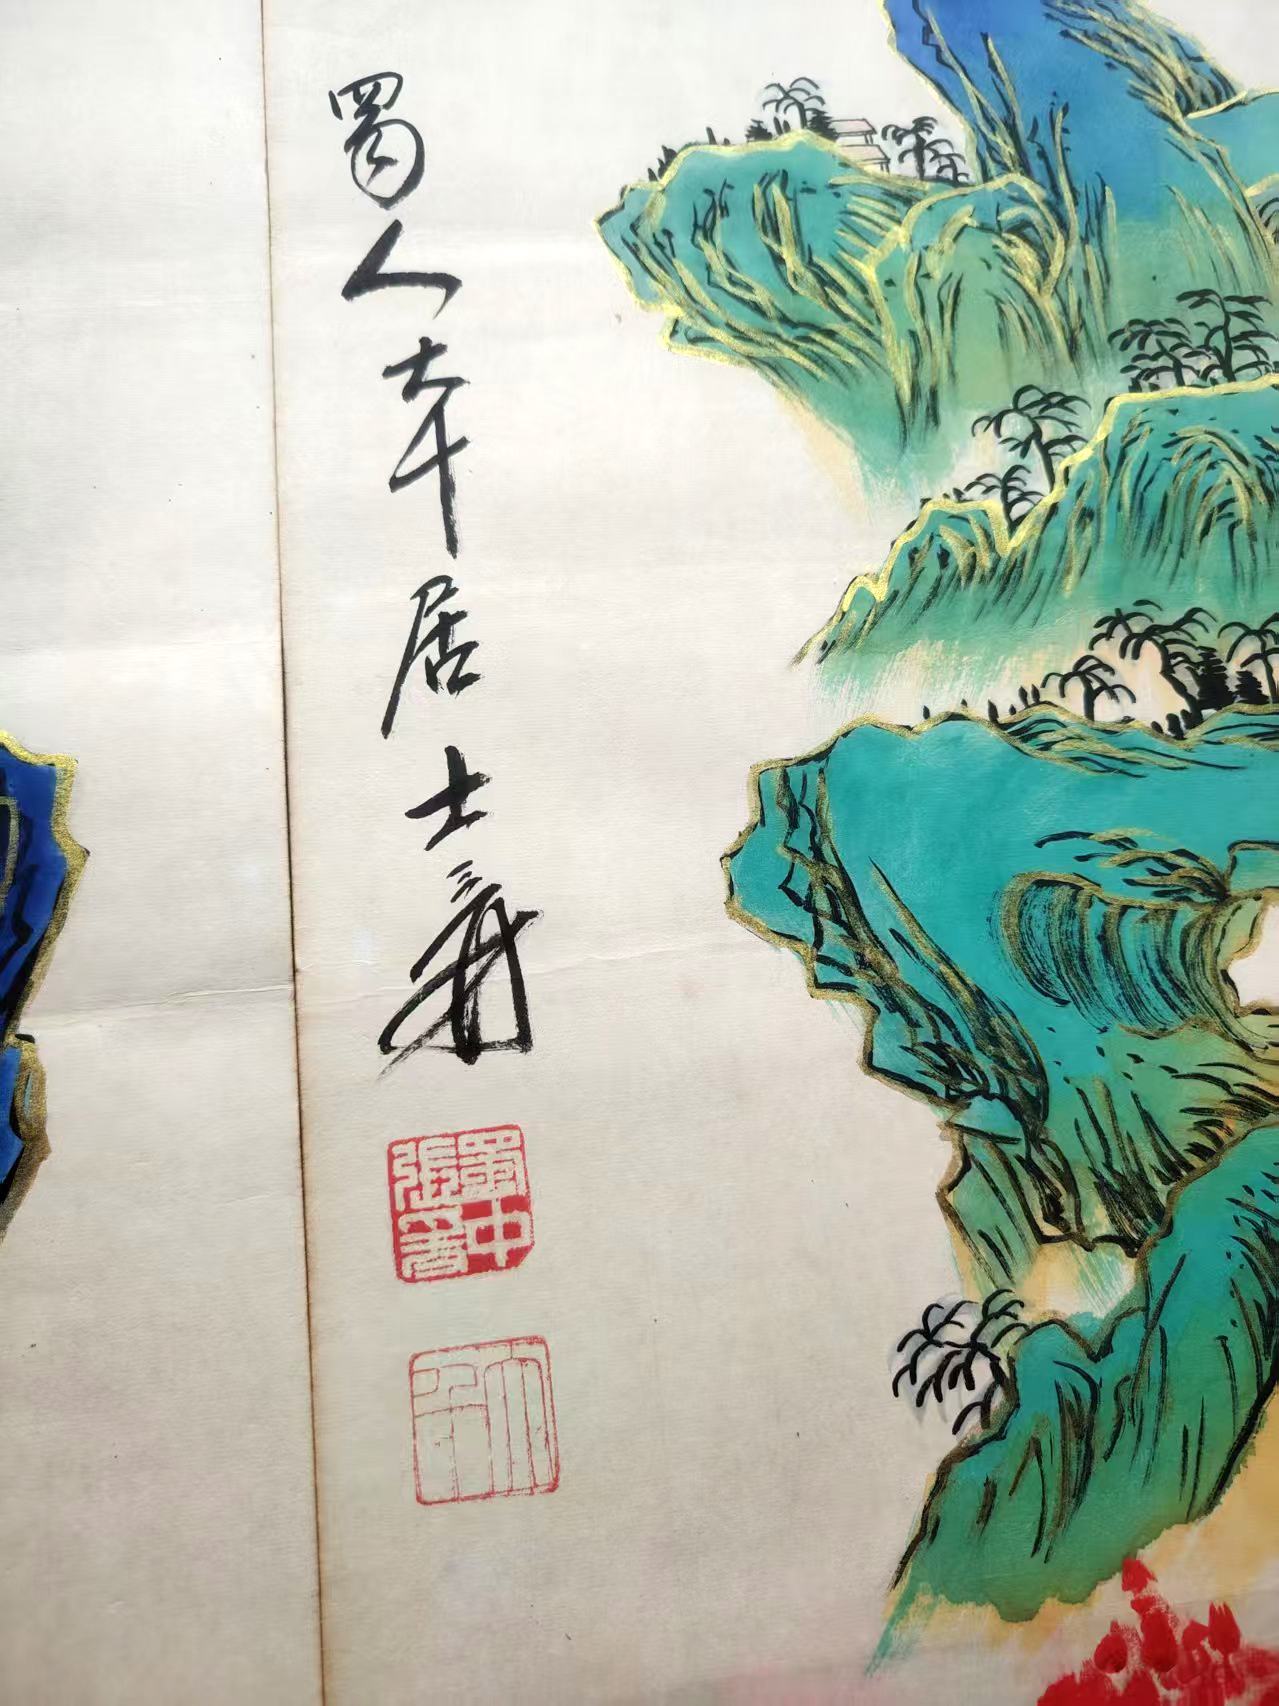 蜀人大千居士爰
蜀中張爰
大千